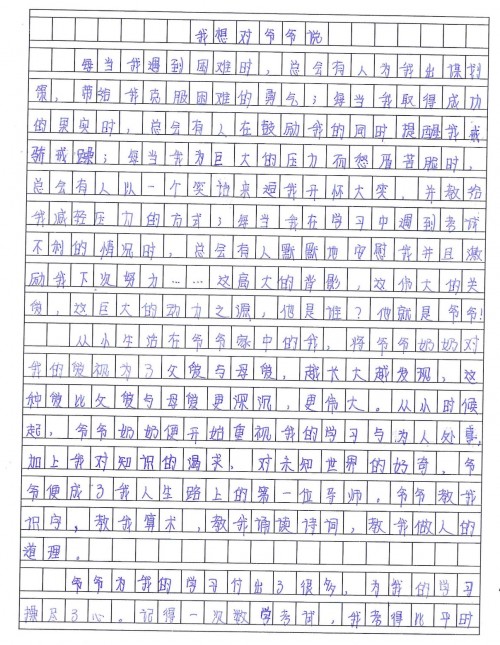 我想对爷爷说
每当我遇到困难时，总会有人为我出谋划
策，带给我克服困难的勇气；每当我取得成功
的果实时，总会有人在鼓励我的同时提醒我戒
骄戒躁；每当我为巨大的压力而愁眉苦脸时，
总会有人以一个笑话来逗我开怀大笑，并教给
我减轻压力的方式；每当我在学习中遇到考试
不利的情况时，总会有人默默地安慰我并且激
励我下次努力……这高大的背影，这伟大的关
爱，这巨大的动力之源，他是谁？他就是爷爷！
从小生活在爷爷家中的我，将爷爷奶奶对
我的爱视为了父爱与母爱，越长大越发现，这
种爱比父爱与母爱更深沉，更伟大。从小时候
起，爷爷奶奶便开始重视我的学习与为人处事，
加上我对知识的渴求，对未知世界的好奇，爷
爷便成了我人生路上的第一位导师。爷爷教我
识字，教我算术，教我诵读诗词，教我做人的
道理。
爷爷为我的学习付出了很多，为我的学习
操尽了心。记得一次数学考试，我考得比平时